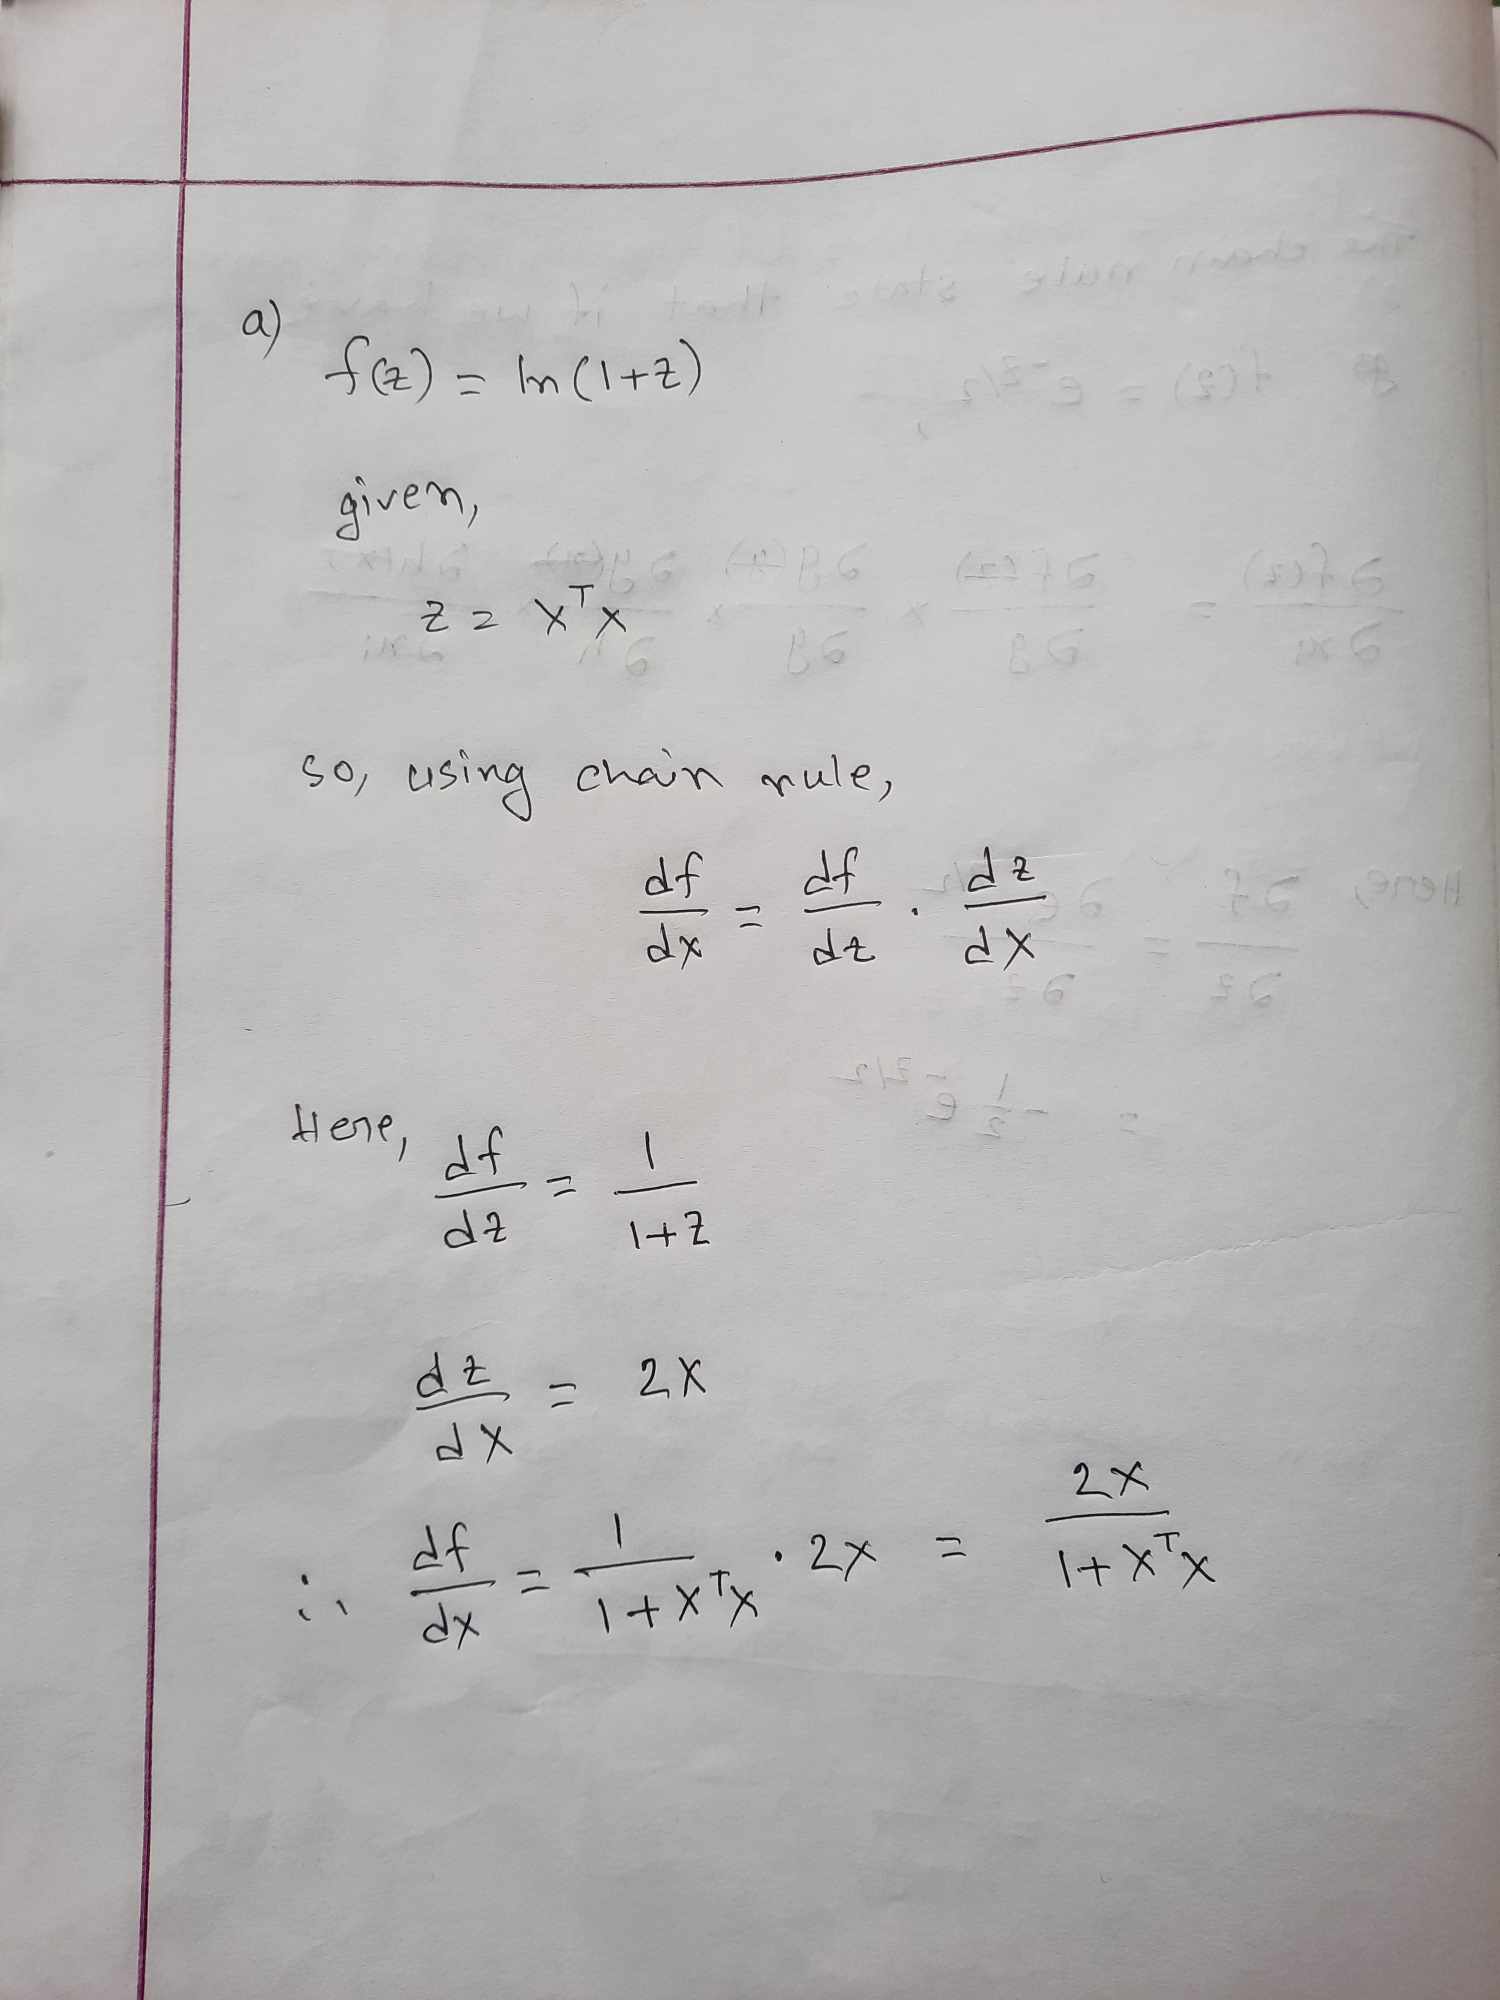 a)
f(z) = ln(1+z)
given,
z = x^T x
so, using chain rule,
df/dx = df/dz . dz/dx
Here, df/dz = 1/1+z
dz/dx = 2x
∴ df/dx = 1/1+x^T x . 2x = 2x/1+x^T x